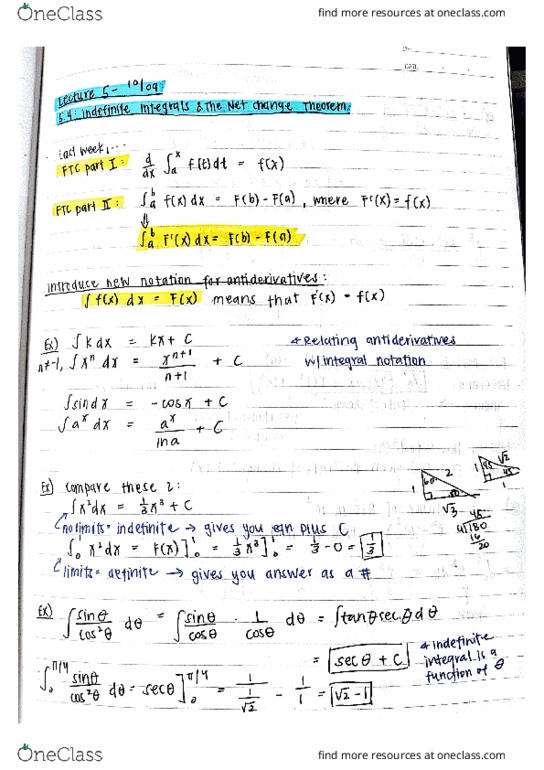 OneClass
find more resources at oneclass.com
Lecture 5 - 10/09
5.4: Indefinite Integrals & The Net Change Theorem
Last week, ...
FTC part I: d/dx ∫ₐˣ f(t)dt = f(x)
FTC part II: ∫ₐᵇ f(x) dx = F(b) - F(a), where F'(x) = f(x)
⇓
∫ₐᵇ F'(x) dx = F(b) - F(a)
introduce new notation for antiderivatives:
∫ f(x) dx = F(x) means that F'(x) = f(x)
Ex) ∫ k dx = kx + C
* Relating antiderivatives
w/ integral notation
n≠-1, ∫ xⁿ dx = xⁿ⁺¹/n+1 + C
∫ sin dx = -cos x + C
∫ aˣ dx = aˣ/ln a + C
Ex) compare these 2:
∫ x² dx = 1/3 x³ + C
no limits = indefinite → gives you eqn plus C
∫₀¹ x² dx = F(x)]₀¹ = 1/3 x³]₀¹ = 1/3 - 0 = 1/3
limits = definite → gives you answer as a #
1 60 2 √3
1 45 √2 45 1
45
4)180
16
20
Ex) ∫ sinθ/cos²θ dθ = ∫ sinθ/cosθ · 1/cosθ dθ = ∫ tanθ secθ dθ
= sec θ + C
* indefinite
integral is a
function of θ
∫₀^π/4 sinθ/cos²θ dθ = secθ]₀^π/4 = 1/(1/√2) - 1/1 = √2 - 1
OneClass
find more resources at oneclass.com